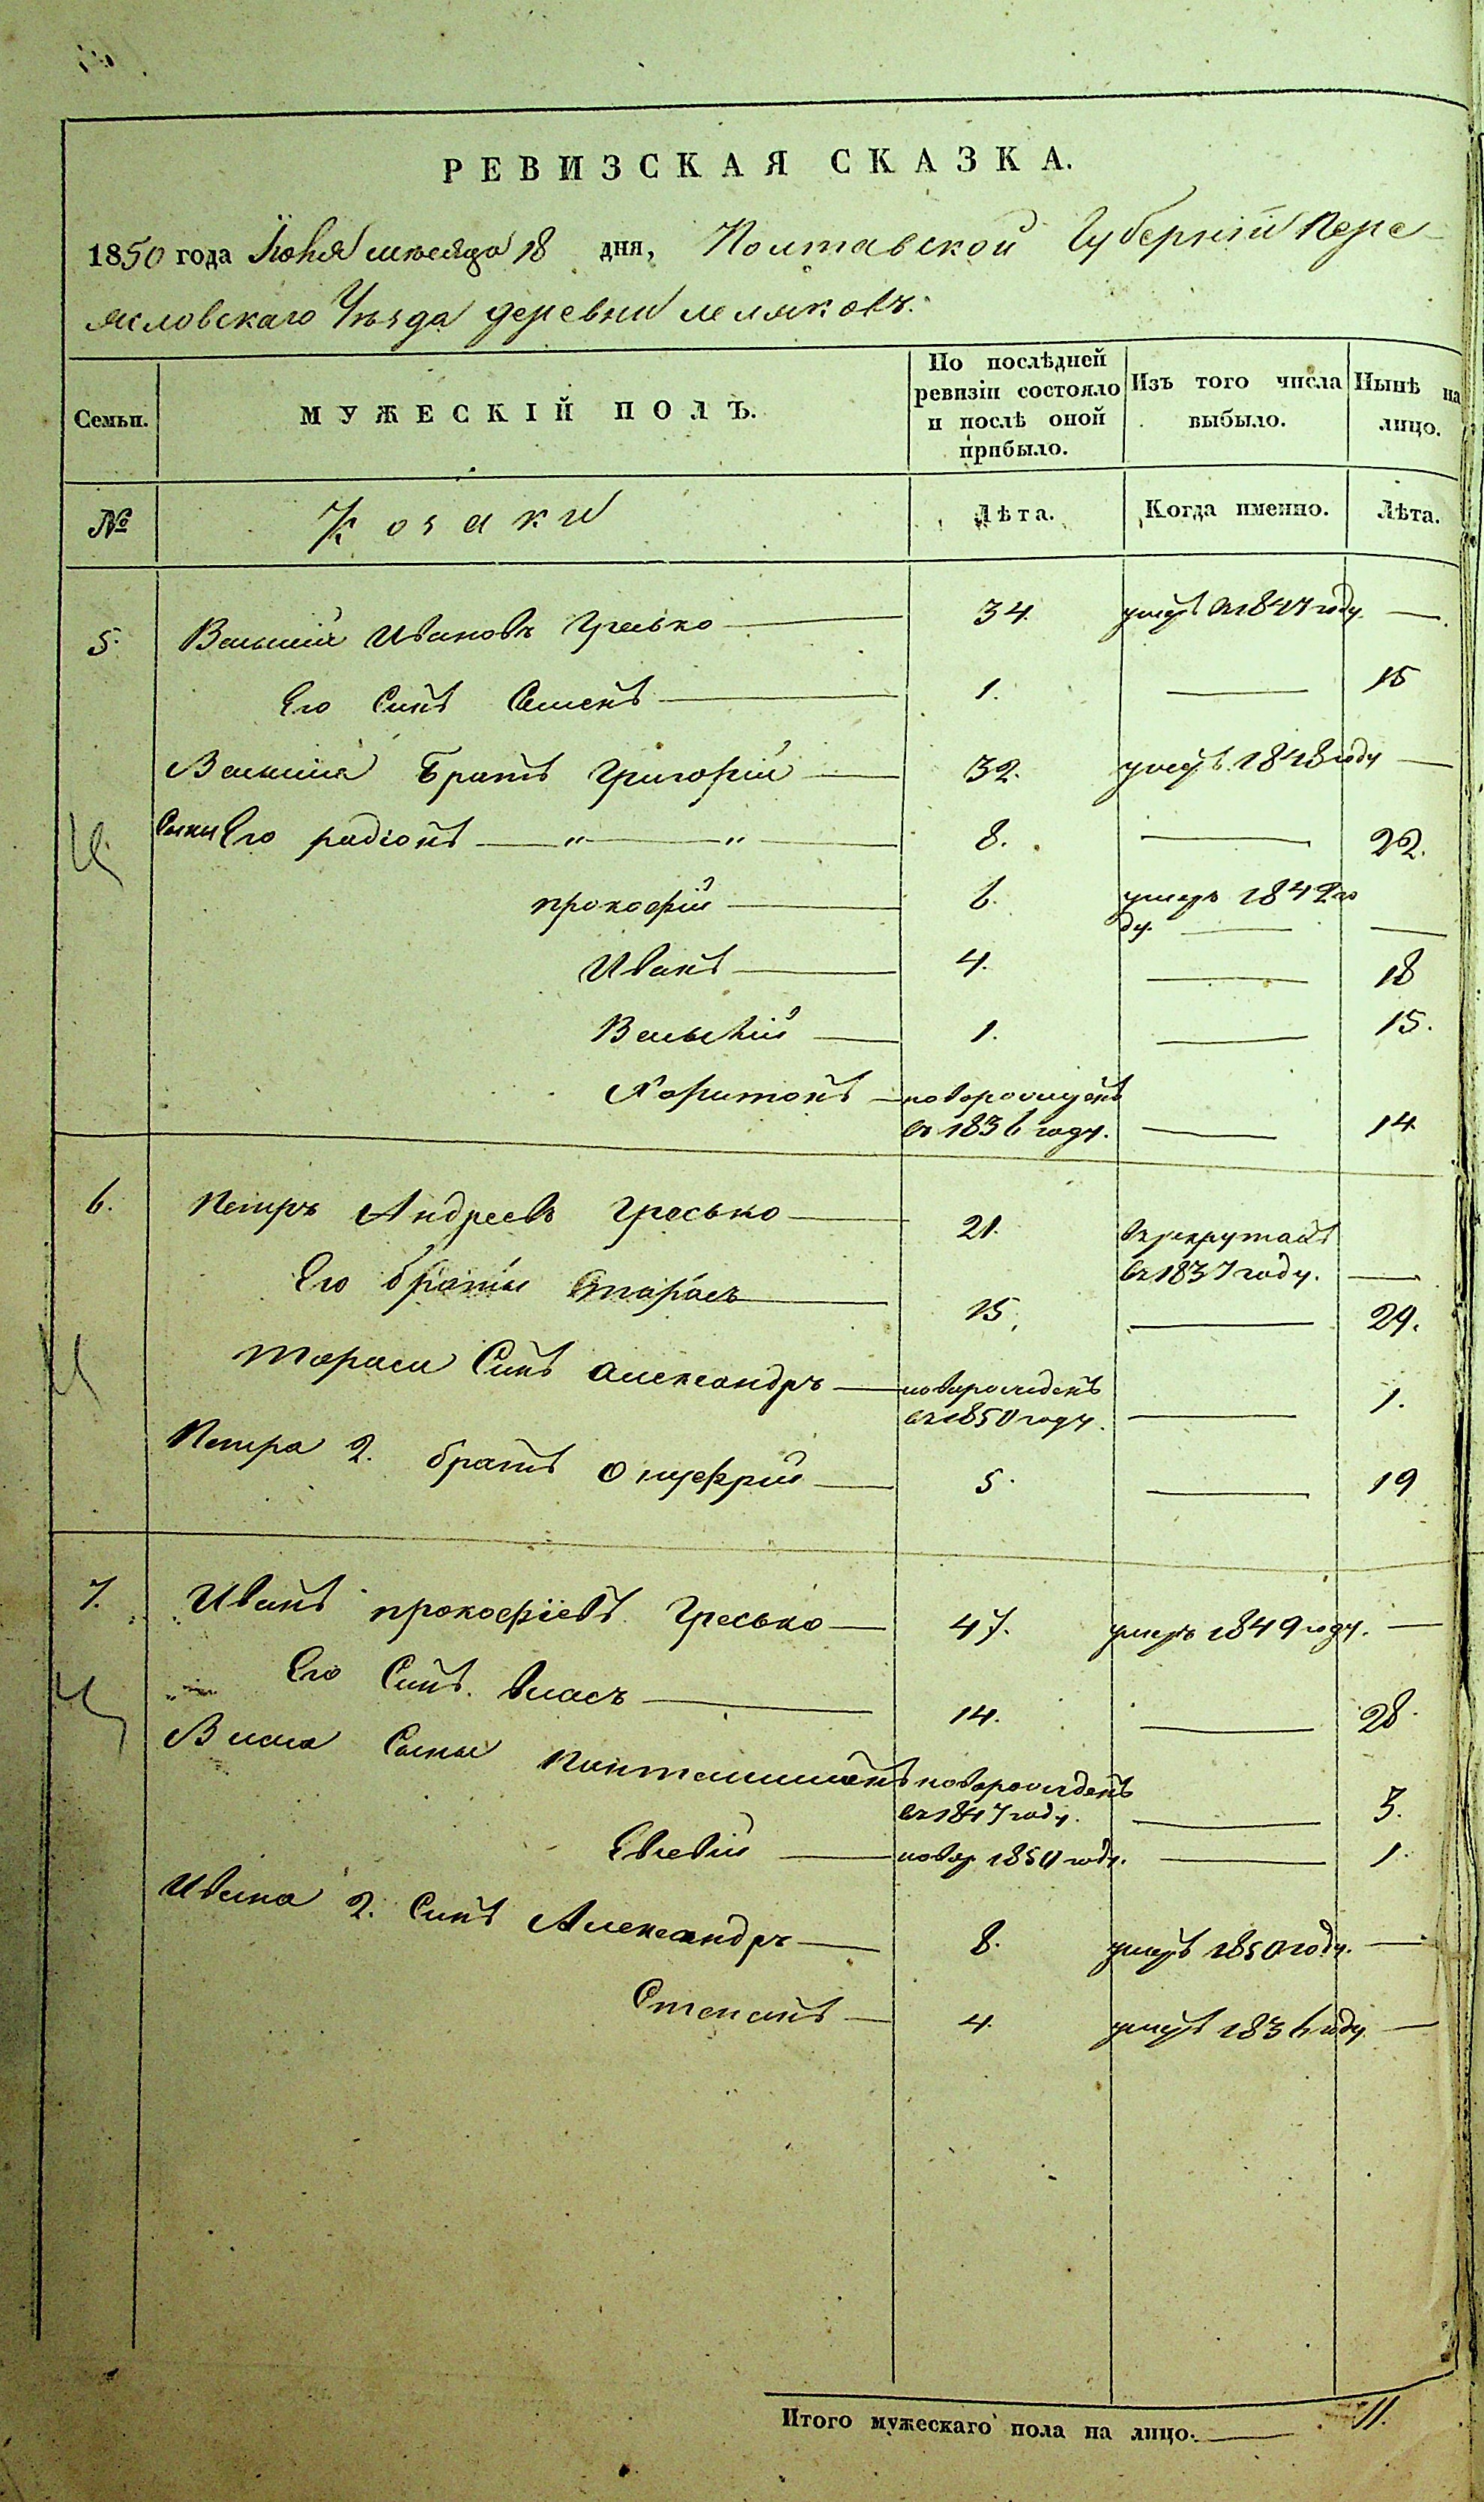 РЕВИЗСКАЯ СКАЗКА.
1850 года Іюня месяца 18 дня, Полтавской Губерніи Пере-
яславскаго Уѣзда деревни лемяковъ.
Семьи.
МУЖЕСКІЙ ПОЛЪ.
По послѣдней
ревизіи состояло
и послѣ оной
прибыло.
Изъ того числа
выбыло.
Нынѣ на
лицо.
№ Козаки Лѣта. Когда именно. Лѣта.
5. Василій Ивановъ Гресько 34. умеръ въ 1847 году.
Его Синъ Семенъ 1. 15
Василія Братъ Григорій 32. умеръ 1848 году
Сыны Его радіонъ 8. 22.
прокофій 6. умеръ 1842 го
ду.
Иванъ 4. 18
Василій 1. 15.
Харитонъ новорожденъ
въ 1836 году. 14
6. Петръ Андреевъ Гресько 21. въ рекрутахъ
въ 1837 году.
Его братья Тарасъ 15. 29.
Тараса Синъ Александръ новорожденъ
въ 1850 году. 1.
Петра 2. братъ Онуфрій 5. 19
7. Иванъ прокофіевъ Гресько 47. умеръ 1849 году.
Его Синъ Власъ 14. 28.
Власа Сыны Пантелимонъ новорожденъ
въ 1847 году. 3.
Евсевій новор 1850 году. 1.
Ивана 2. Синъ Александръ 8. умеръ 1850 году.
Степанъ 4. умеръ 1836 году
Итого мужескаго пола на лицо. 11.